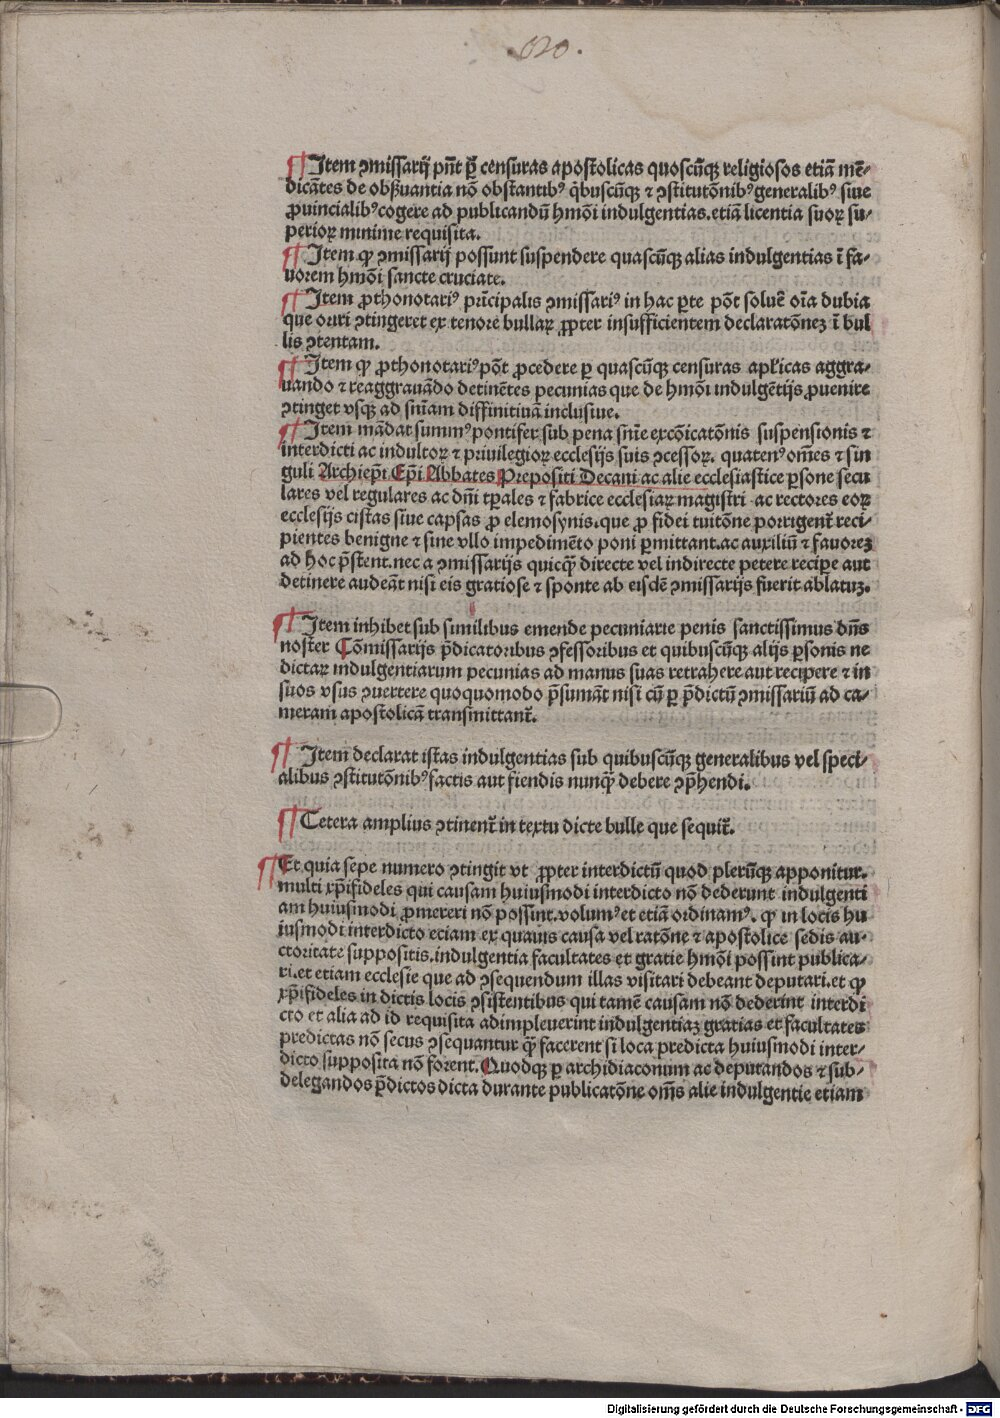 020.
¶ Item ꝯmissarij pn̄t ꝑ censuras apostolicas quoscūqꝫ religiosos etiā mē-
dicātes de obẜuantia nō obstantibꝰ q̇buscūqꝫ ⁊ ꝯstitutōnibꝰ generalibꝰ siue
ꝓuincialibꝰ cogere ad publicandū hmōi indulgentias. etiā licentia suoꝝ su-
perioꝝ minime requisita.
¶ Item ꝙ ꝯmissarij possunt suspendere quascūqꝫ alias indulgentias ī fa-
uorem hmōi sancte cruciate.
¶ Item ꝓthonotariꝰ prīcipalis ꝯmissariꝰ in hac ꝑte pōt soluē oīa dubia
que oriri ꝯtingeret ex tenore bullaꝝ ꝓpter insufficientem declaratōneꝫ ī bul
lis ꝯtentam.
¶ Item ꝙ ꝓthonotariꝰ pōt ꝓcedere ꝑ quascūqꝫ censuras apl'icas aggra-
uando ⁊ reaggrauādo detinētes pecunias que de hmōi indulgētijs ꝓuenire
ꝯtinget vsqꝫ ad sn̄iam diffinitiuā inclusiue.
¶ Item mādat summꝰ pontifex sub pena sn̄ie excōicatōnis suspensionis ⁊
interdicti ac indultoꝝ ⁊ priuilegioꝝ ecclesijs suis ꝯcessoꝝ. quatenꝰ om̄es ⁊ sin
guli Archiep̄i Ep̄i Abbates Prepositi Decani ac alie ecclesiastice ꝑsone secu
lares vel regulares ac dn̄i tꝑales ⁊ fabrice ecclesiaꝝ magistri ac rectores eoꝝ
ecclesijs cistas siue capsas ꝓ elemosynis. que ꝓ fidei tuitōne porrigent᷑ reci-
pientes benigne ⁊ sine vllo impedimēto poni ꝑmittant. ac auxiliū ⁊ fauoreꝫ
ad hoc p̄stent. nec a ꝯmissarijs quicq̄ȝ directe vel indirecte petere recipe aut
detinere audeāt nisi eis gratiose ⁊ sponte ab eisdē ꝯmissarijs fuerit ablatuꝫ.
¶ Item inhibet sub similibus emende pecuniarie penis sanctissimus dn̄s
noster Cōmissarijs p̄dicatoribus ꝯfessoribus et quibuscūqꝫ alijs ꝑsonis ne
dictaꝝ indulgentiarum pecunias ad manus suas retrahere aut recipere ⁊ in
suos vsus ꝯuertere quoquomodo p̄sumāt nisi cū ꝑ p̄dictū ꝯmissariū ad ca-
meram apostolicā transmittant᷑.
¶ Item declarat istas indulgentias sub quibuscūqꝫ generalibus vel speci-
alibus ꝯstitutōnibꝰ factis aut fiendis nunq̄ȝ debere ꝯp̄hendi.
¶ Cetera amplius ꝯtinent᷑ in textu dicte bulle que sequit᷑.
¶ Et quia sepe numero ꝯtingit vt ꝓpter interdictū quod plerūqꝫ apponitur.
multi xp̄ifideles qui causam huiusmodi interdicto nō dederunt indulgenti
am huiusmodi ꝓmereri nō possint. volumꝰ et etiā ordinamꝰ. ꝙ in locis hu
iusmodi interdicto eciam ex quauis causa vel ratōne ⁊ apostolice sedis au-
ctoritate suppositis. indulgentia facultates et gratie hmōi possint publica-
ri. et etiam ecclesie que ad ꝯsequendum illas visitari debeant deputari. et ꝙ
xp̄ifideles in dictis locis ꝯsistentibus qui tamē causam nō dederint interdi
cto et alia ad id requisita adimpleuerint indulgentiaꝫ gratias et facultates
predictas nō secus ꝯsequantur q̄ȝ facerent si loca predicta huiusmodi inter-
dicto supposita nō forent. Quodqꝫ ꝑ archidiaconum ac deputandos ⁊ sub-
delegandos p̄dictos dicta durante publicatōne om̄s alie indulgentie etiam
Digitalisierung gefördert durch die Deutsche Forschungsgemeinschaft - DFG